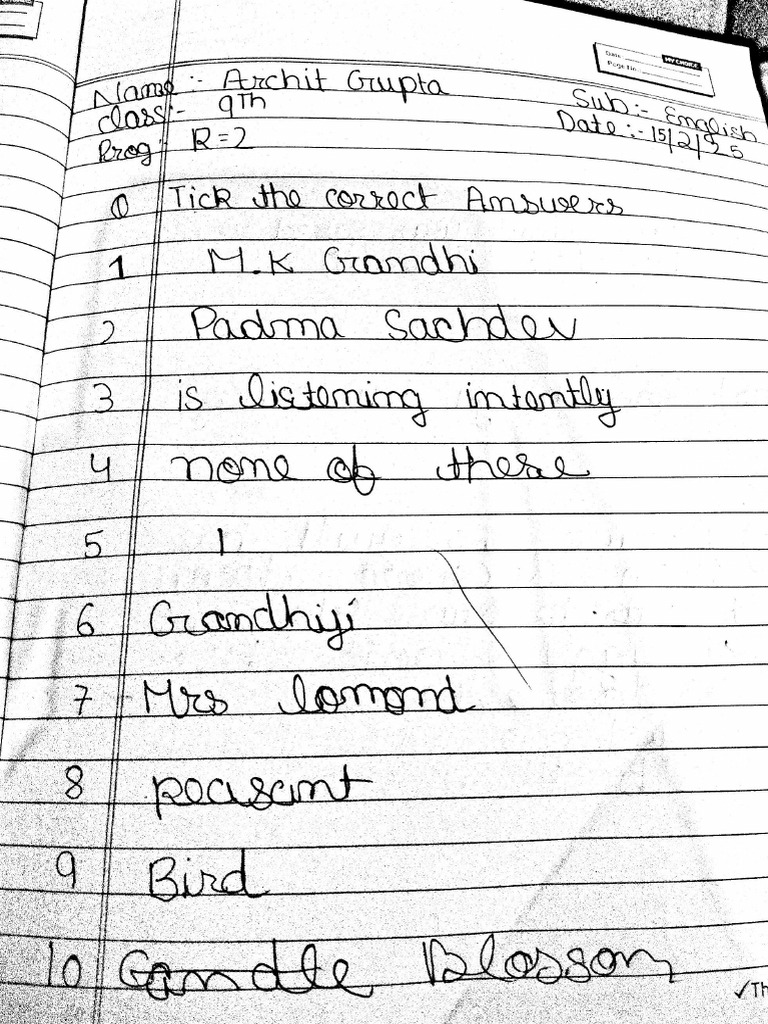 Date
MY CHOICE
Page No.
Name :- Archit Gupta
Sub:- English
Class:- 9Th
Date:- 15/2/25
R=2
0 Tick the correct Answers
1 M.K Gandhi
2 Padma Sachdev
3 is listening intently
4 none of these
5 1
6 Gandhiji
7 Mrs lomond
8 peasant
9 Bird
10 Candle Blossom
✓Th